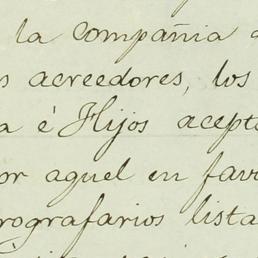 la compañia
s acreedores, los
a é Hijos acept
or aquel en fav
rografarios lista